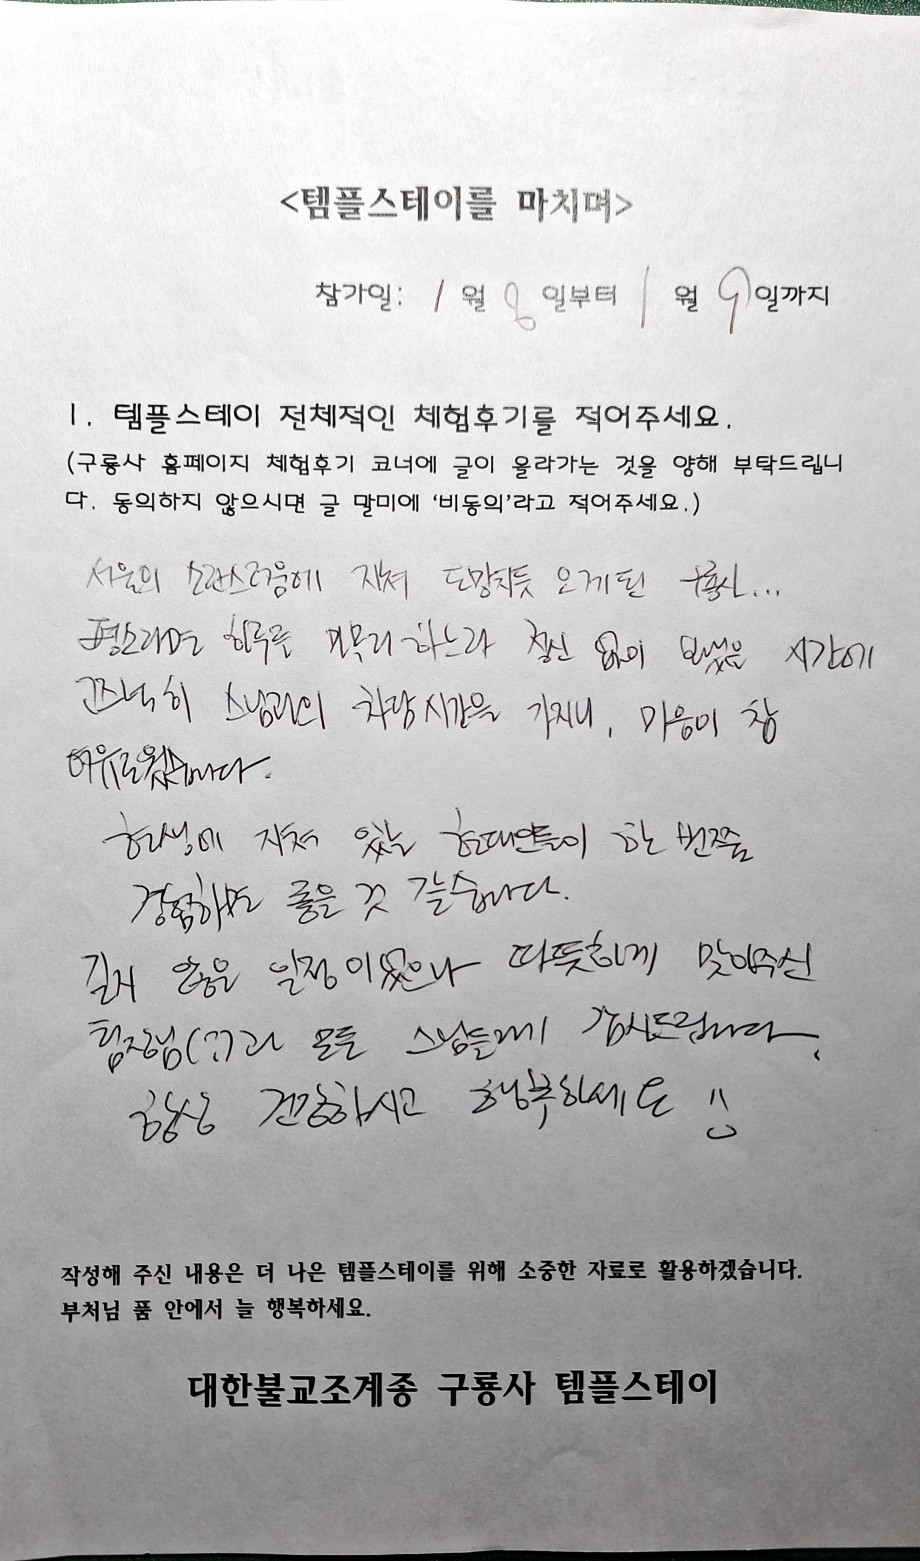 <템플스테이를 마치며>
참가일: 1월 8일부터 1월 9일까지
1. 템플스테이 전체적인 체험후기를 적어주세요.
(구룡사 홈페이지 체험후기 코너에 글이 올라가는 것을 양해 부탁드립니
다. 동의하지 않으시면 글 말미에 '비동의'라고 적어주세요.)
서울의 소란스러움에 지쳐 도망치듯 오게 된 구룡사...
평소라면 하루를 마무리 하느라 정신 없이 보냈을 시간에
고즈넉히 스님과의 차담시간을 가지니, 마음이 참
여유로웠습니다.
현생에 지쳐 있는 현대인들이 한 번쯤
경험하면 좋을 것 같습니다.
길지 않은 일정이었으나 따뜻하게 맞아주신
팀장님(??)과 모든 스님들께 감사드립니다.
항상 건강하시고 행복하세요 :)
작성해 주신 내용은 더 나은 템플스테이를 위해 소중한 자료로 활용하겠습니다.
부처님 품 안에서 늘 행복하세요.
대한불교조계종 구룡사 템플스테이